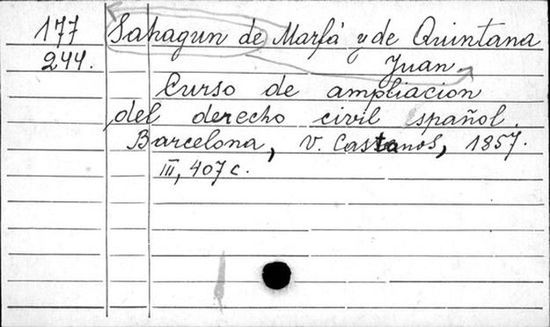 177 Sahagun de Marfá y de Quintana
244. Juan.
Curso de ampliacion
del derecho civil español.
Barcelona, V. Castanos, 1857.
III, 407 c.